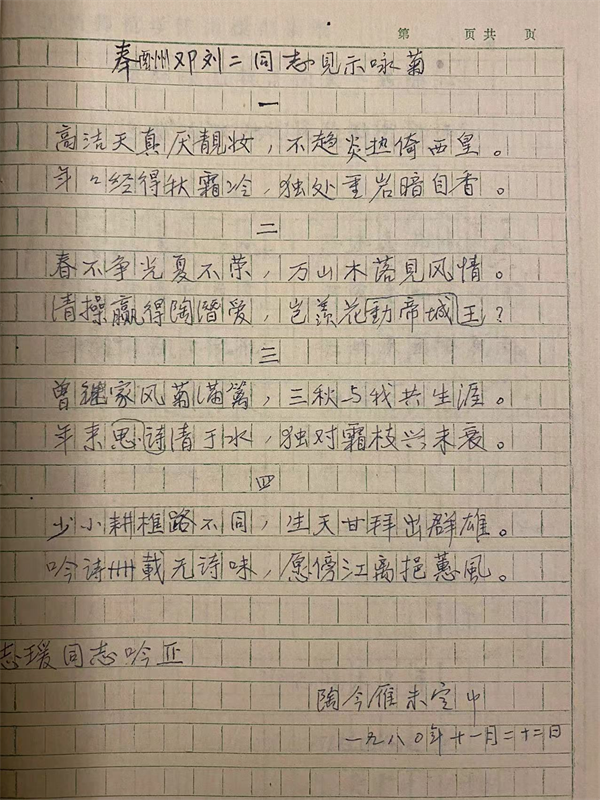 第 页共 页
奉酬邓刘二同志见示咏菊
一
高洁天真厌靓妆，不趋炎热倚西皇。
年々经得秋霜冷，独处重岩暗自香。
二
春不争光夏不荣，万山木落见风情。
清操赢得陶潜爱，岂羡花動帝城王？
三
曾继家风菊满篱，三秋与我共生涯。
年来思诗清于水，独对霜枝兴未衰。
四
少小耕樵路不同，生天甘拜出群雄。
吟诗卌載无诗味，愿傍江离挹蕙風。
志瑗同志吟正
陶今雁未定
一九八〇年十一月二十二日